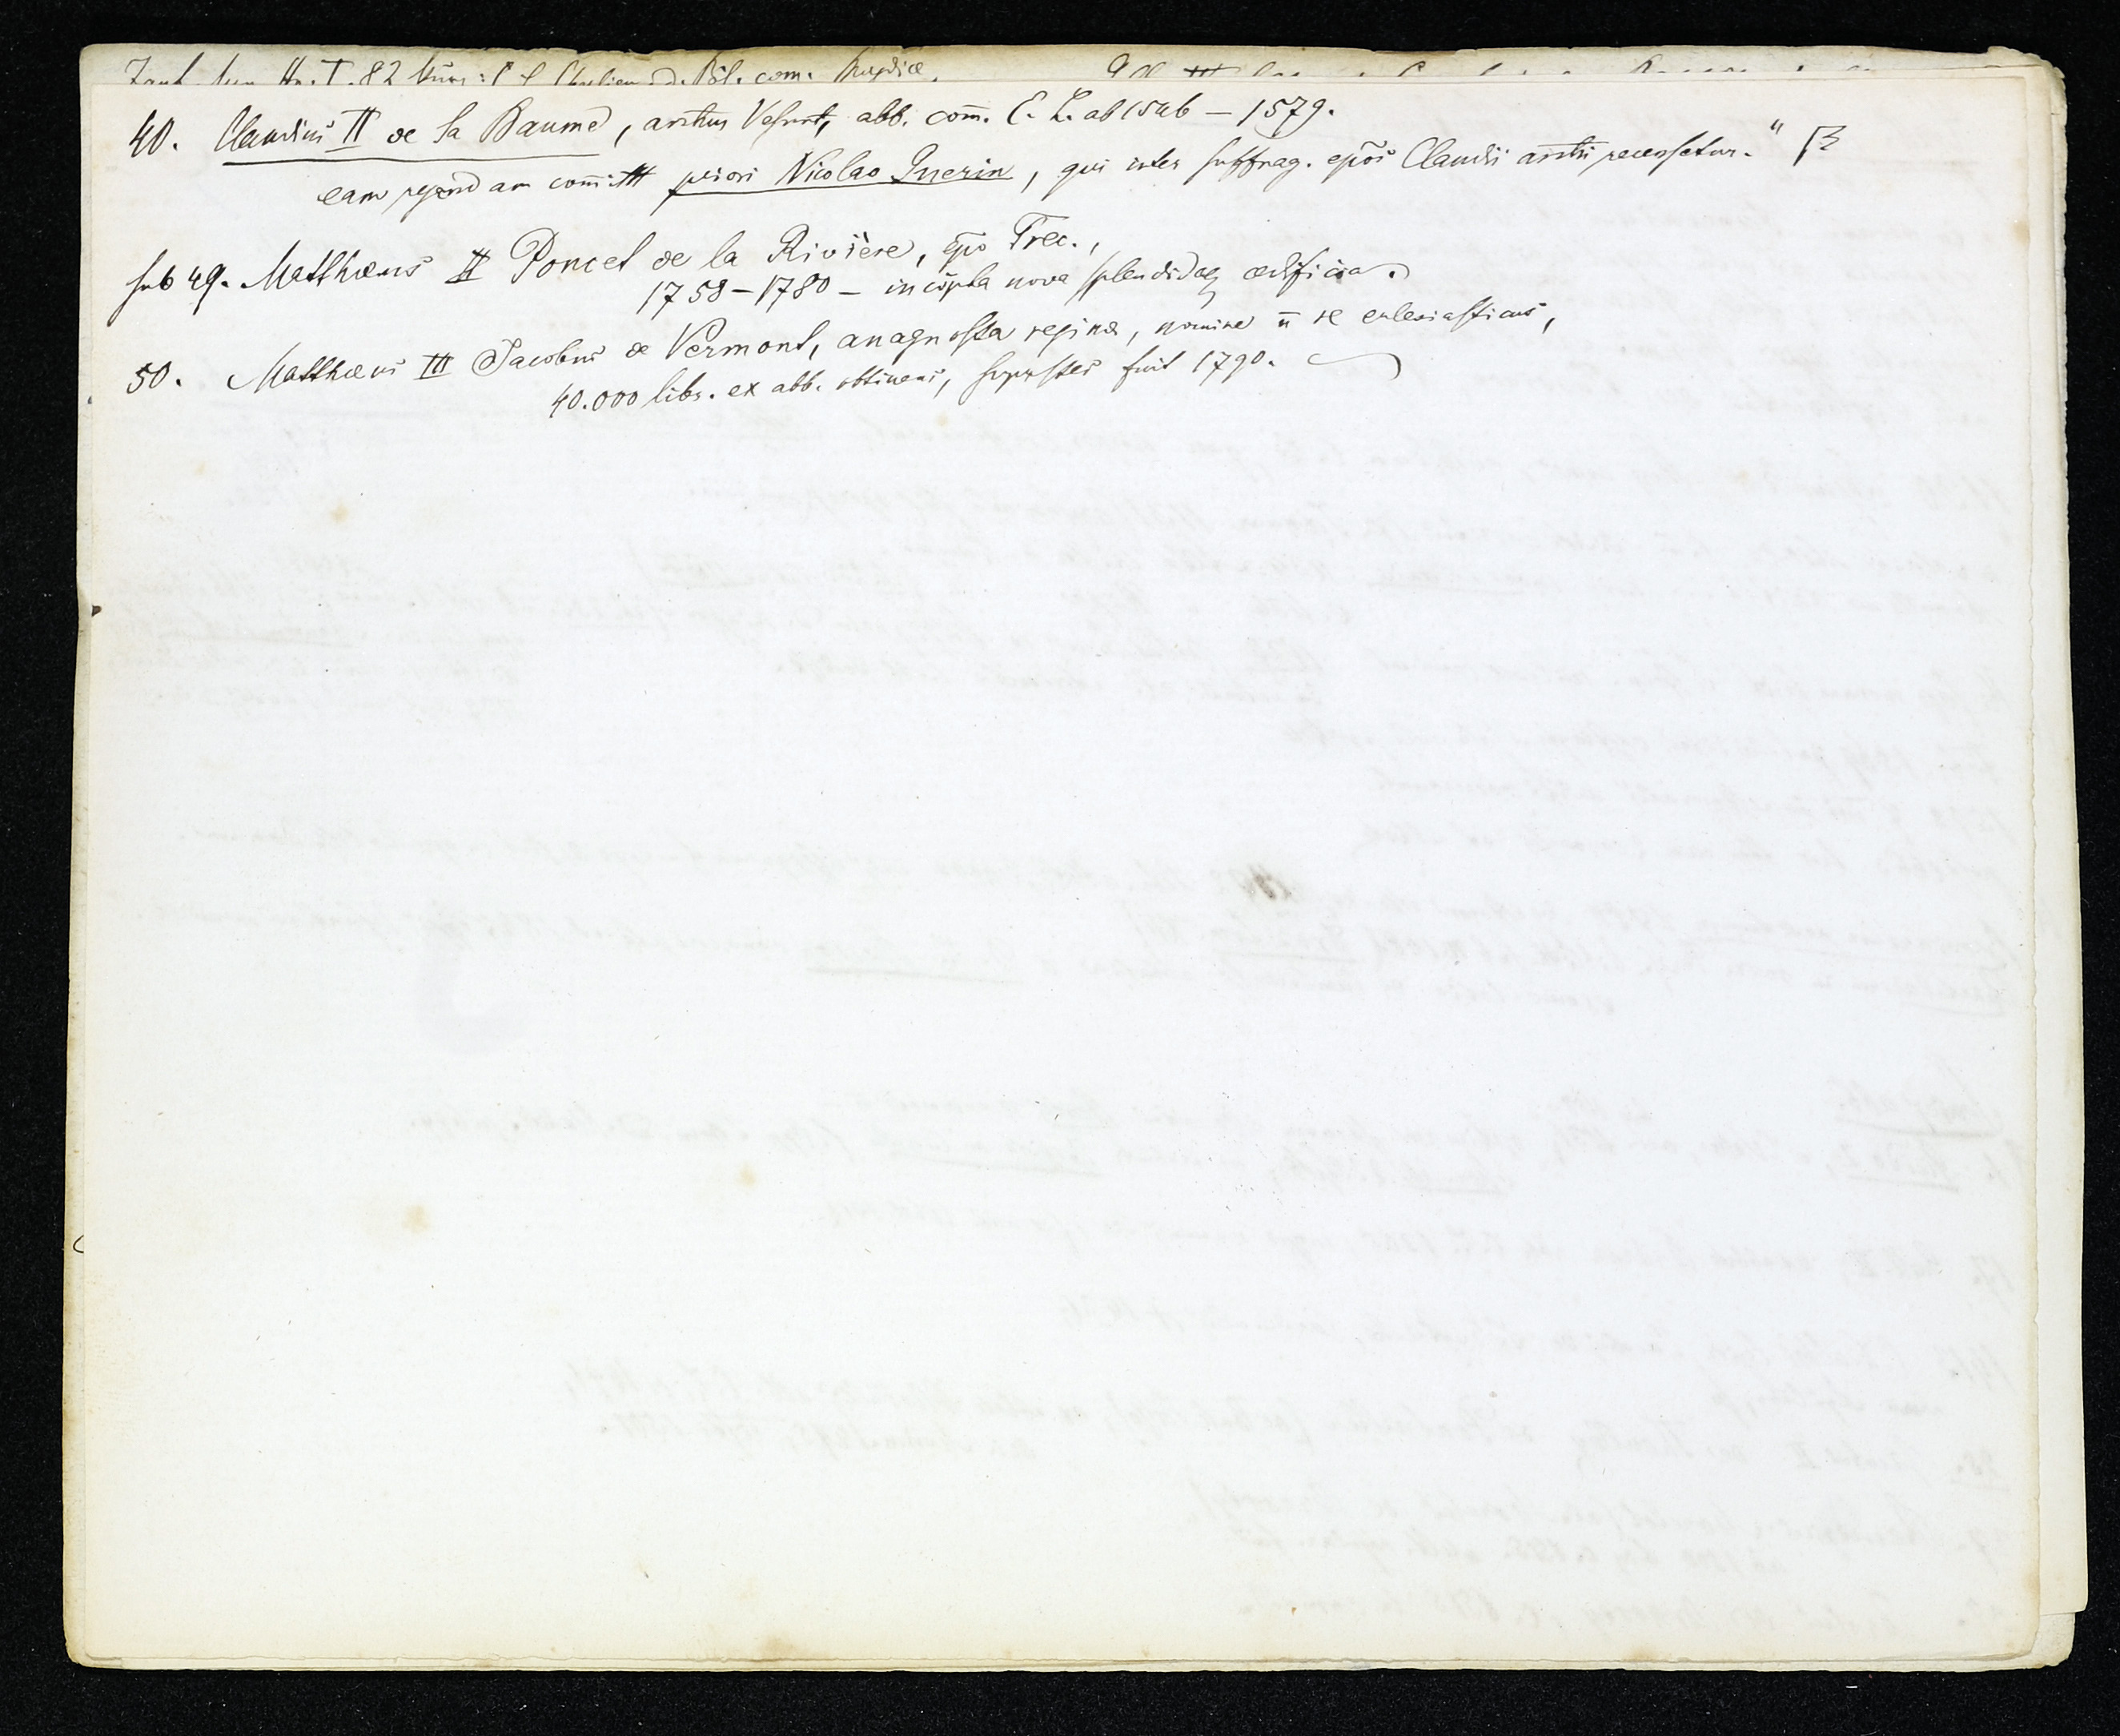 40. Claudius II de la Baume, archus Vesunt, abb. com̄. C. L. ab 1546 – 1579.
eam regendam com̄ittit priori Nicolao Guerin, qui inter suffrag. ep̄os Claudii archi recensetur."
sub 49. Matthæus II Poncet de la Rivière, ep̄o Trec.,
1758–1780 – incœpta nova splendidaq ædificia.
50. Matthæus III Jacobus de Vermont, anagnosta reginæ, nomine n̄ re ecclesiasticus,
40.000 libr. ex abb. obtinens, superstes fuit 1790.